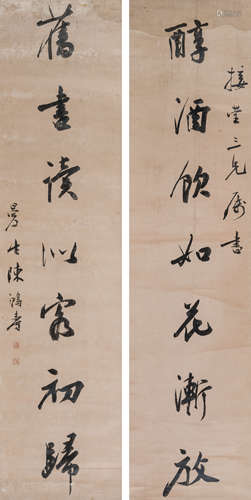 接堂三兄屬書
醇酒飲如花漸放
舊書讀似客初歸
曼生陳鴻壽